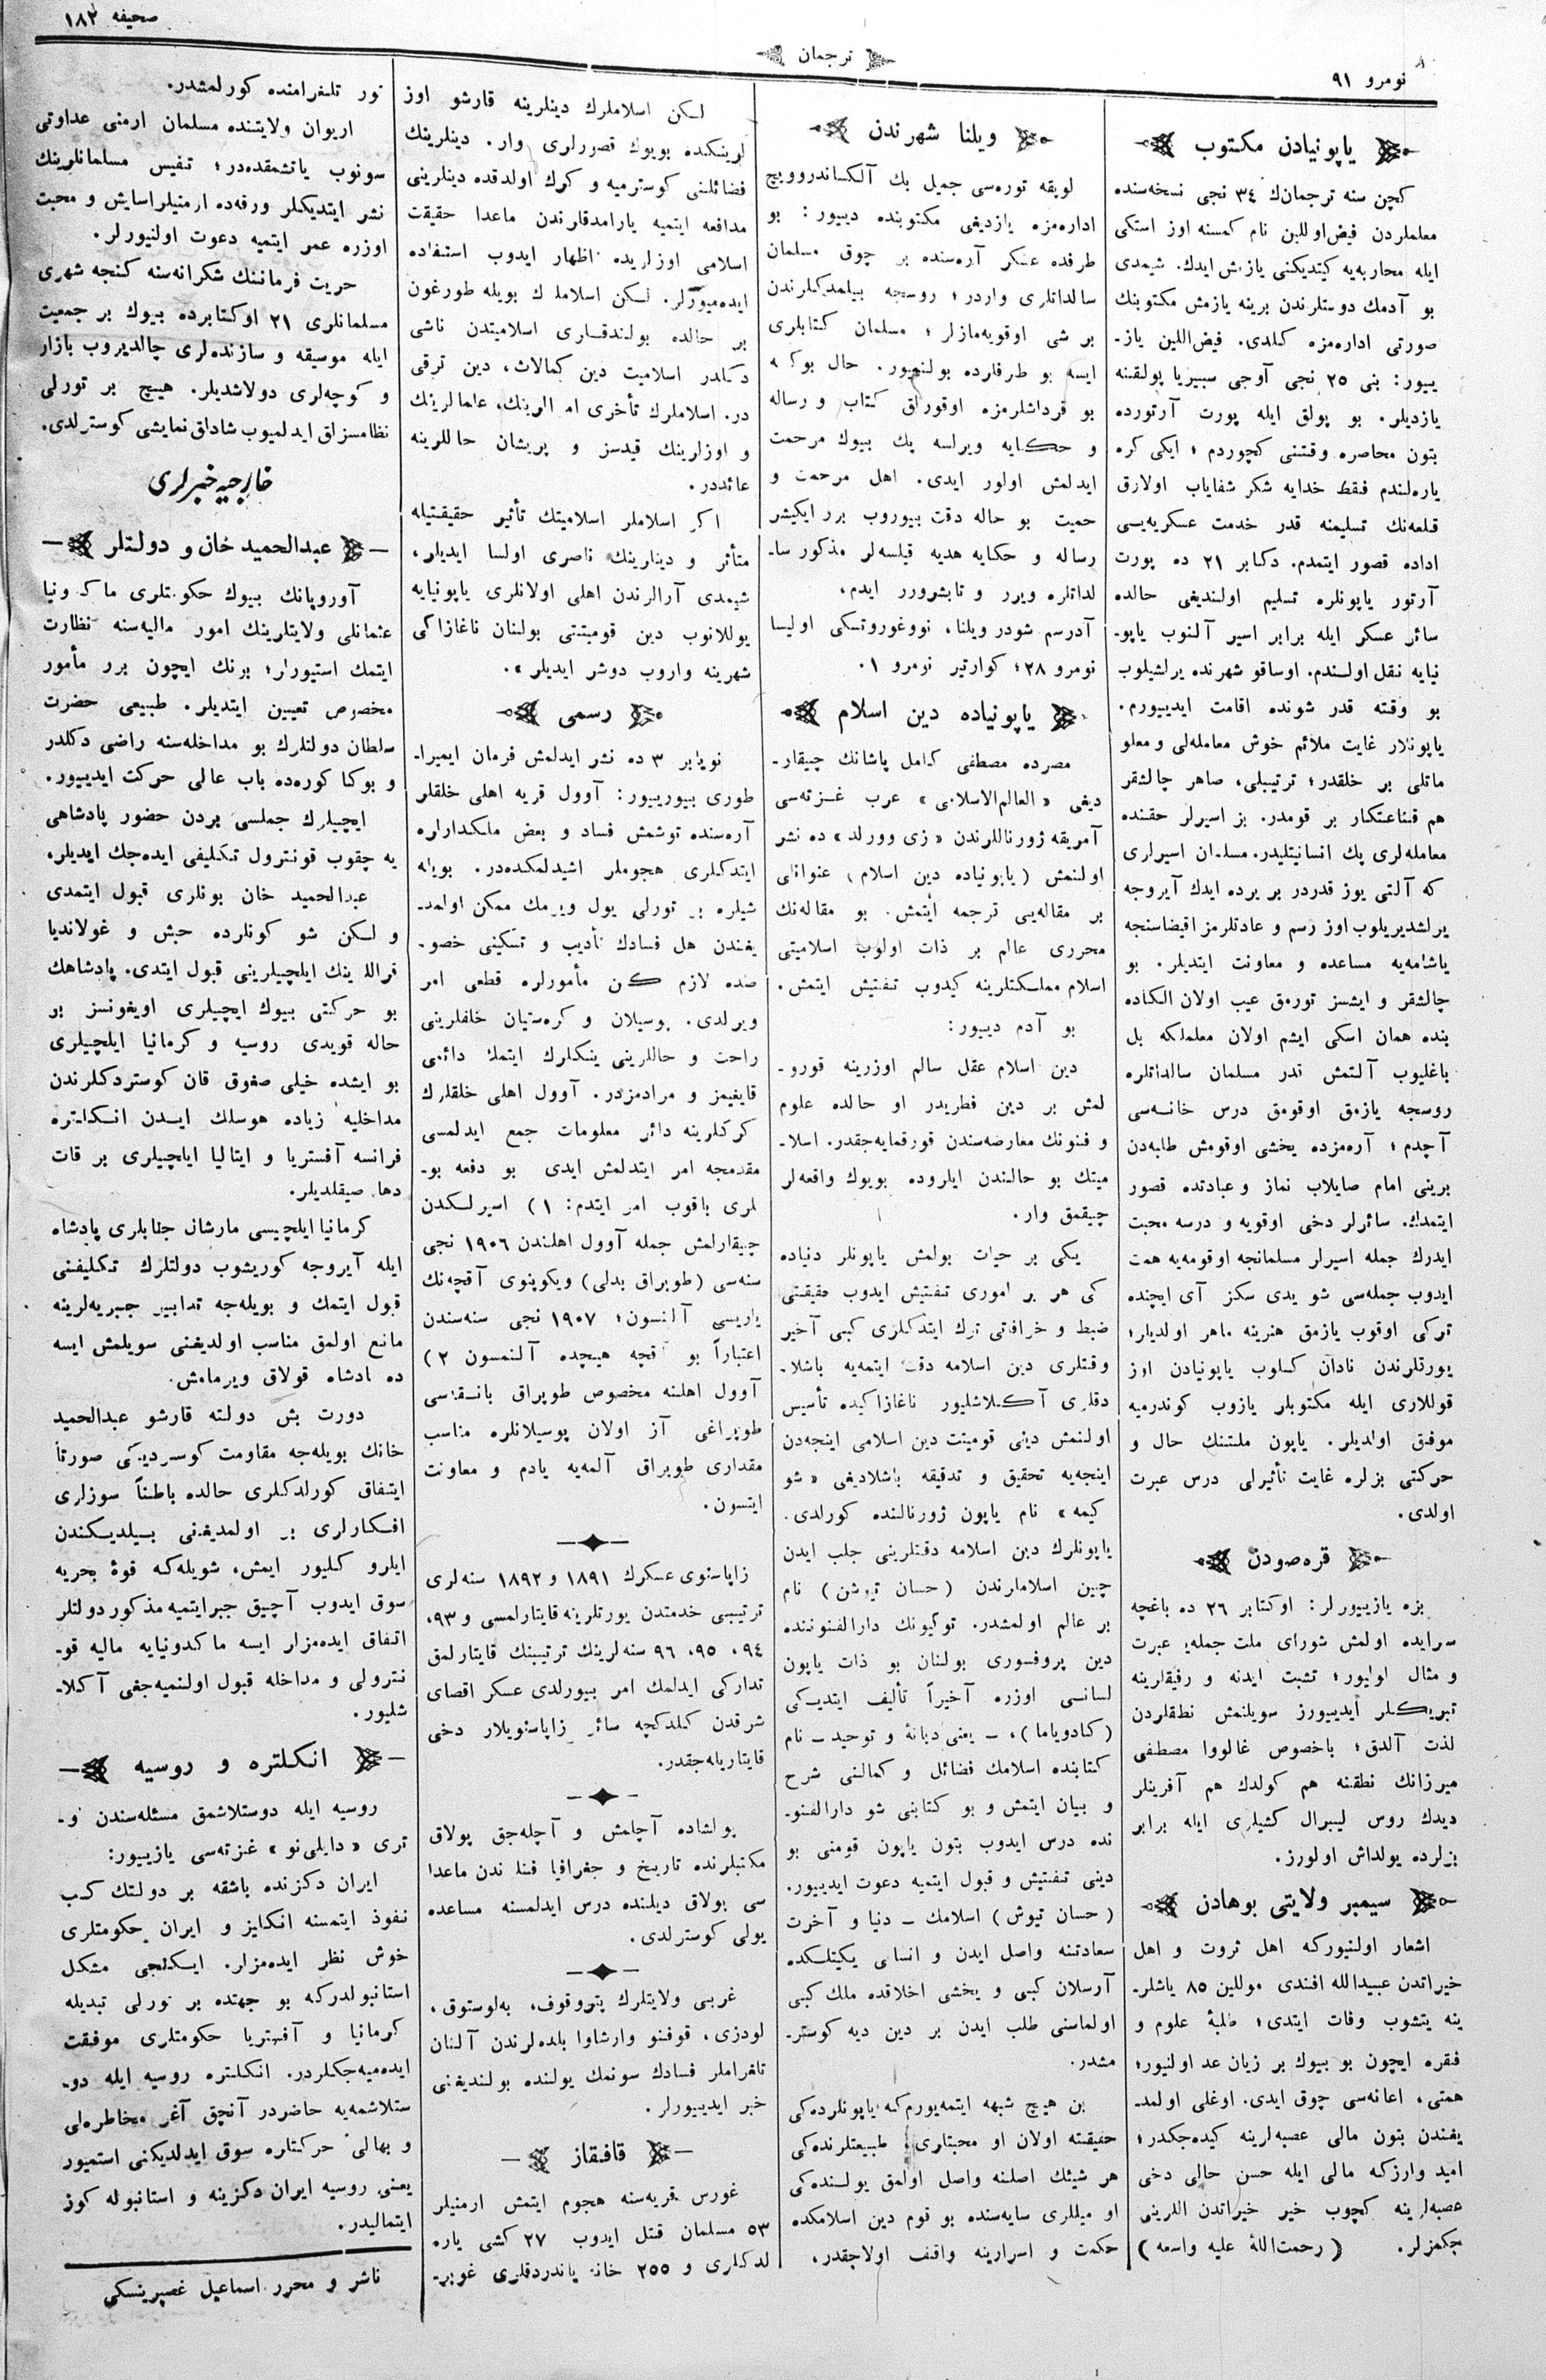 صحیفه ۱۸۲
ترجمان
نومرو ۹۱
یاپونیادن مکتوب
کچن سنه ترجمانك ۳۴ نجی نسخه‌سنده
معلملردن فیض‌اوللین نام کمسنه اوز استکی
ایله محاربه‌یه کیتدیکنی یازمش ایدك. شیمدی
بو آدمك دوستلرندن برینه یازمش مکتوبنك
صورتی اداره‌مزه کلدی. فیض‌اللین یاز-
ییور: بنی ۲۵ نجی آوجی سیبریا پولقنه
یازدیلر. بو پولق ایله پورت آرتورده
بتون محاصره وقتنی کچوردم ؛ ایکی کره
یاره‌لندم فقط خدایه شکر شفایاب اولارق
قلعه‌نك تسلیمنه قدر خدمت عسکریه‌یی
اداده قصور ایتمدم. دکابر ۲۱ ده پورت
آرتور یاپونلره تسلیم اولندیغی حالده
سائر عسکر ایله برابر اسیر آلنوب یاپو-
نیایه نقل اولندم. اوساقو شهرنده یرلشیلوب
بو وقته قدر شونده اقامت ایدییورم.
یاپونلار غایت ملائم خوش معامله‌لی و معلو
ماتلی بر خلقدر؛ ترتیبلی، صاهر چالشقر
هم قناعتکار بر قومدر. بز اسیرلر حقنده
معامله‌لری پك انسانیتلیدر. مسلمان اسیرلری
که آلتی یوز قدردر بر یرده ایدك آیروجه
یرلشدیریلوب اوز رسم و عادتلرمز اقیضاسنجه
یاشامه‌یه مساعده و معاونت ایتدیلر. بو
چالشقر و ایشسز تورمق عیب اولان الکاده
بنده همان اسکی ایشم اولان معلملکه بل
باغلیوب آلتمش قدر مسلمان سالداتلره
روسجه یازمق اوقومق درس خانه‌سی
آچدم ؛ آره‌مزده یخشی اوقومش طلبه‌دن
برینی امام صایلاب نماز و عبادتده قصور
ایتمدك. سائرلر دخی اوقویه و درسه محبت
ایدرك جمله اسیرلر مسلمانجه اوقومه‌یه همت
ایدوب جمله‌سی شو یدی سکز آی ایچنده
ترکی اوقوب یازمق هنرینه ماهر اولدیلر؛
یورتلرندن نادان کلوب یاپونیادن اوز
قوللاری ایله مکتوبلر یازوب کوندرمیه
موفق اولدیلر. یاپون ملتنك حال و
حرکتی بزلره غایت تأثیرلی درس عبرت
اولدی.
قره‌صودن
بزه یازییورلر: اوکتابر ۲۶ ده باغچه
سرایده اولمش شورای ملت جمله‌یه عبرت
و مثال اولیور؛ تشبث ایدنه و رفیقلرینه
تبریکلر ایدییورز سویلنمش نطقلردن
لذت آلدق؛ باخصوص غالووا مصطفی
میرزانك نطقنه هم کولدك هم آفرینلر
دیدك روس لیبرال کشیلری ایله برابر
بزلرده یولداش اولورز.
سیمبر ولایتی بوهادن
اشعار اولنیورکه اهل ثروت و اهل
خیراتدن عبیدالله افندی موللین ۸۵ یاشلر-
ینه یتشوب وفات ایتدی؛ طلبهٔ علوم و
فقره ایچون بو بیوك بر زیان عد اولنیور؛
همتی، اعانه‌سی چوق ایدی. اوغلی اولمد-
یغندن بتون مالی عصبه‌لرینه کیده‌جکدر؛
امید وارزکه مالی ایله حسن حالی دخی
عصبه‌لرینه کچوب خیر خیراتدن اللرینی
چکمزلر. (رحمت‌اللهٔ علیه واسعه)
ویلنا شهرندن
لوبقه توره‌سی جمیل بك آلکساندروویچ
اداره‌مزه یازدیغی مکتوبنده دییور: بو
طرفده عسکر آره‌سنده بر چوق مسلمان
سالداتلری واردر؛ روسجه بیلمدکلرندن
بر شی اوقویه‌مازلر ؛ مسلمان کتابلری
ایسه بو طرفلرده بولنمیور. حال بوکه
بو قرداشلرمزه اوقورلق کتاب و رساله
و حکایه ویرلسه پك بیوك مرحمت
ایدلمش اولور ایدی. اهل مرحمت و
حمیت بو حاله دقت بیوروب برر ایکیشر
رساله و حکایه هدیه قیلسه‌لر مذکور سا-
لداتلره ویرر و تابشرورر ایدم،
آدرسم شودر ویلنا، نووغوروتسکی اولیسا
نومرو ۲۸؛ کوارتیر نومرو ۱.
یاپونیاده دین اسلام
مصرده مصطفی کامل پاشانك چیقار-
دیغی «العالم‌الاسلامی» عرب غزته‌سی
آمریقه ژورناللرندن «زی وورلد» ده نشر
اولنمش (یاپونیاده دین اسلام) عنوانلی
بر مقاله‌یی ترجمه ایتمش. بو مقاله‌نك
محرری عالم بر ذات اولوب اسلامیتی
اسلام مملکتلرینه کیدوب تفتیش ایتمش.
بو آدم دییور:
دین اسلام عقل سالم اوزرینه قورو-
لمش بر دین فطریدر او حالده علوم
و فنونك معارضه‌سندن قورقمایه‌جقدر. اسلا-
میتك بو حالندن ایلروده بویوك واقعه‌لر
چیقمق وار.
یکی بر حیات بولمش یاپونلر دنیاده
کی هر بر اموری تفتیش ایدوب حقیقتی
ضبط و خرافاتی ترك ایتدکلری کبی آخیر
وقتلری دین اسلامه دقت ایتمه‌یه باشلا-
دقلری آکلاشلیور ناغازاکیده تأسیس
اولنمش دینی قومیتت دین اسلامی اینجه‌دن
اینجه‌یه تحقیق و تدقیقه باشلادیغی «شو
کیمه» نام یاپون ژورنالنده کورلدی.
یاپونلرك دین اسلامه دقتلرینی جلب ایدن
چین اسلاملرندن (حسان تیوشن) نام
بر عالم اولمشدر. توکیونك دارالفنوننده
دین پروفسوری بولنان بو ذات یاپون
لسانی اوزره آخیراً تألیف ایتدیکی
(کادویاما)، – یعنی دیانة و توحید – نام
کتابنده اسلامك فضائل و کمالنی شرح
و بیان ایتمش و بو کتابنی شو دارالفنو-
نده درس ایدوب بتون یاپون قومنی بو
دینی تفتیش و قبول ایتمیه دعوت ایدییور.
(حسان تیوش) اسلامك – دنیا و آخرت
سعادتنه واصل ایدن و انسانی یکیتلکده
آرسلان کبی و یخشی اخلاقده ملك کبی
اولماسنی طلب ایدن بر دین دیه کوستر-
مشدر.
بن هیچ شبهه ایتمه‌یورم‌که یاپونلرده‌کی
حقیقته اولان او محبتلری، طبیعتلرنده‌کی
هر شیئك اصلنه واصل اولمق یولنده‌کی
او میللری سایه‌سنده بو قوم دین اسلامكده
حکمت و اسرارینه واقف اولاجقدر،
لکن اسلاملرك دینلرینه قارشو اوز
لرینکده بویوك قصورلری وار. دینلرینك
فضائلنی کوسترمیه و کرك اولدقده دینلرینی
مدافعه ایتمیه یارامدقلرندن ماعدا حقیقت
اسلامی اوزلریده اظهار ایدوب استفاده
ایده‌میورلر. لکن اسلاملرك بویله طورغون
بر حالده بولندقلری اسلامیتدن ناشی
دکلدر اسلامیت دین کمالات، دین ترقی
در. اسلاملرك تأخری امرالرینك، علمالرینك
و اوزلرینك قیدسز و پریشان حاللرینه
عائددر.
اکر اسلاملر اسلامیتك تأثیر حقیقتیله
متأثر و دینلرینك ناصری اولسا ایدیلر،
شیمدی آرالرندن اهلی اولانلری یاپونیایه
یوللانوب دین قومیتتی بولنان ناغازاکی
شهرینه واروب دوشر ایدیلر».
رسمی
نویابر ۳ ده نشر ایدلمش فرمان ایمپرا-
طوری بیوریبور: آوول قریه اهلی خلقلر
آره‌سنده توشمش فساد و بعض ملکدارلره
ایتدکلری هجوملر اشیدلمکده‌در. بویله
شیلره بر تورلی یول ویرمك ممکن اولمد-
یغندن هل فسادك تأدیب و تسکینی خصو-
صنده لازم کلن مأمورلره قطعی امر
ویرلدی. پوسیلان و کره‌ستیان خلقلرینی
راحت و حاللرینی ینکلرك ایتمك دائمی
قایغیمز و مرادمزدر. آوول اهلی خلقلرك
کرکلرینه دائر معلومات جمع ایدلمسی
مقدمجه امر ایتدلمش ایدی بو دفعه بو-
لری باقوب امر ایتدم: ۱) اسیرلکدن
چیقارلمش جمله آوول اهلندن ۱۹۰۶ نجی
سنه‌سی (طوپراق بدلی) ویکوپنوی آقچه‌نك
یاریسی آلنسون؛ ۱۹۰۷ نجی سنه‌سندن
اعتباراً بو آقچه هیچده آلنمسون ۲)
آوول اهلنه مخصوص طوپراق بانقاسی
طوپراغی آز اولان پوسیلانلره مناسب
مقداری طوپراق آلمه‌یه یاردم و معاونت
ایتسون.
زاپاسنوی عسکرك ۱۸۹۱ و ۱۸۹۲ سنه‌لری
ترتیبی خدمتدن یورتلرینه قایتارلمسی و ۹۳،
۹۴، ۹۵، ۹۶ سنه‌لرینك ترتیبنك قایتارلمق
تدارکی ایدلمك امر بیورلدی عسکر اقصای
شرقدن کلدکچه سائر زاپاسنویلار دخی
قایتاریله‌جقدر.
پولشاده آچلمش و آچله‌جق پولاق
مکتبلرنده تاریخ و جغرافیا فنلرندن ماعدا
سی پولاق دیلنده درس ایدلمسنه مساعده
یولی کوسترلدی.
غربی ولایتلرك پتروقوف، به‌لوستوق،
لودزی، قوفنو وارشاوا بلده‌لرندن آلنان
تلغراملر فسادك سونمك یولنده بولندیغنی
خبر ایدییورلر.
قافقاز
غورس قریه‌سنه هجوم ایتمش ارمنیلر
۵۳ مسلمان قتل ایدوب ۲۷ کشی یاره
لدکلری و ۲۵۵ خانه یاندردقلری غوبر-
نور تلغرامنده کورلمشدر.
اریوان ولایتنده مسلمان ارمنی عداوتی
سونوب یاتشمقده‌در؛ تفیس مسلمانلرینك
نشر ایتدیکلر ورقه‌ده ارمنیلراسایش و محبت
اوزره عمر ایتمیه دعوت اولنیورلر.
حریت فرماننك شکرانه‌سنه کنجه شهری
مسلمانلری ۲۱ اوکتابرده بیوك بر جمعیت
ایله موسیقه و سازنده‌لری چالدیروب بازار
و کوچه‌لری دولاشدیلر. هیچ بر تورلی
نظامسزلق ایدلمیوب شادلق نمایشی کوسترلدی.
خارجیه خبرلری
عبدالحمید خان و دولتلر
آوروپانك بیوك حکومتلری ماکدونیا
عثمانلی ولایتلرینك امور مالیه‌سنه نظارت
ایتمك استیورلر؛ برنك ایچون برر مأمور
مخصوص تعیین ایتدیلر. طبیعی حضرت
سلطان دولتلرك بو مداخله‌سنه راضی دکلدر
و بوکا کوره‌ده باب عالی حرکت ایدییور.
ایچیلرك جملسی بردن حضور پادشاهی
یه چقوب قونترول تکلیفی ایده‌جك ایدیلر،
عبدالحمید خان بونلری قبول ایتمدی
و لکن شو کونلرده حبش و غولاندیا
قراللرینك ایلچیلرینی قبول ایتدی. پادشاهك
بو حرکتی بیوك ایچیلری اویغونسز بر
حاله قویدی روسیه و کرمانیا ایلچیلری
بو ایشده خیلی صغوق قان کوستردکلرندن
مداخلیه زیاده هوسلك ایدن انکلتره
فرانسه آفستریا و ایتالیا ایلچیلری بر قات
دها صیقلدیلر.
کرمانیا ایلچیسی مارشال جنابلری پادشاه
ایله آیروجه کوریشوب دولتلرك تکلیفنی
قبول ایتمك و بویله‌جه تدابیر جبریه‌لرینه
مانع اولمق مناسب اولدیغنی سویلمش ایسه
ده پادشاه قولاق ویرمامش.
دورت بش دولته قارشو عبدالحمید
خانك بویله‌جه مقاومت کوستردیکی صورتاً
ایتفاق کورلدکلری حالده باطناً سوزلری
افکارلری بر اولمدیغنی بیلدیکندن
ایلرو کلیور ایمش، شویله‌که قوهٔ بحریه
سوق ایدوب آچیق جبرایتمیه مذکور دولتلر
اتفاق ایده‌مزلر ایسه ماکدونیایه مالیه قو-
نترولی و مداخله قبول اولنمیه‌جغی آکلا-
شلیور.
انکلتره و روسیه
روسیه ایله دوستلاشمق مسئله‌سندن او-
تری «دایلی‌نو» غزته‌سی یازییور:
ایران دکزنده باشقه بر دولتك کسب
نفوذ ایتمسنه انکلیز و ایران حکومتلری
خوش نظر ایده‌مزلر. ایکنجی مشکل
استانبولدرکه بو جهتده بر تورلی تبدیله
کرمانیا و آفستریا حکومتلری موفقت
ایده‌میه‌جکلردر. انکلتره روسیه ایله دو-
ستلاشمه‌یه حاضردر آنچق آغر مخاطره‌لی
و بهالی حرکتلره سوق ایدلدیکنی استمیور
یعنی روسیه ایران دکزینه و استانبوله کوز
ایتمالیدر.
ناشر و محرر اسماعیل غصپرینسکی